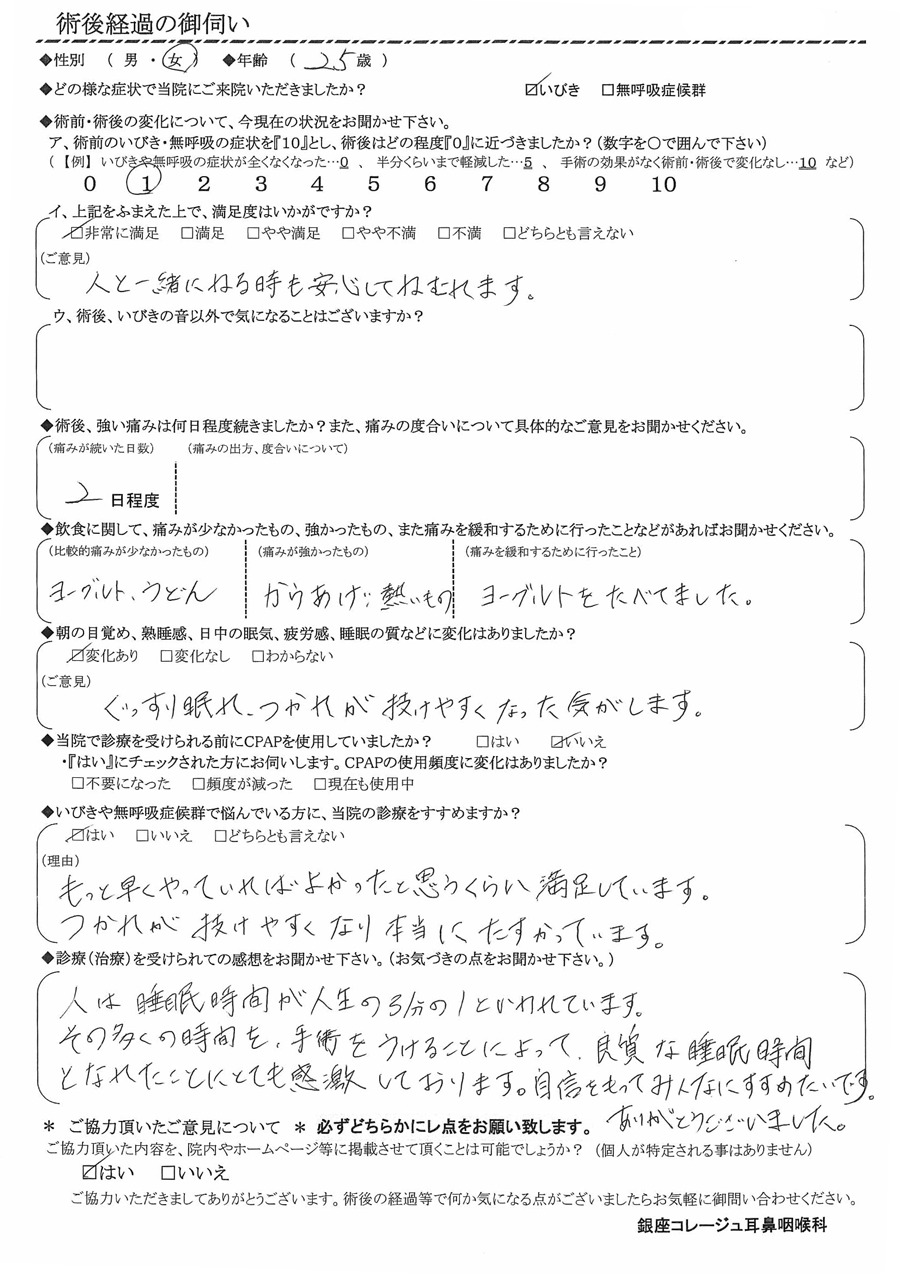 術後経過の御伺い
◆性別 （ 男 ・ 女 ） ◆年齢 （ 25 歳 ）
◆どの様な症状で当院にご来院いただきましたか？ ☑いびき □無呼吸症候群
◆術前・術後の変化について、今現在の状況をお聞かせ下さい。
ア、術前のいびき・無呼吸の症状を『10』とし、術後はどの程度『0』に近づきましたか？（数字を○で囲んで下さい）
（ 【例】 いびきや無呼吸の症状が全くなくなった…0 、 半分くらいまで軽減した…5 、 手術の効果がなく術前・術後で変化なし…10 など）
0 1 2 3 4 5 6 7 8 9 10
イ、上記をふまえた上で、満足度はいかがですか？
☑非常に満足 □満足 □やや満足 □やや不満 □不満 □どちらとも言えない
（ご意見）
人と一緒にねる時も安心してねむれます。
ウ、術後、いびきの音以外で気になることはございますか？
◆術後、強い痛みは何日程度続きましたか？また、痛みの度合いについて具体的なご意見をお聞かせください。
（痛みが続いた日数） （痛みの出方、度合いについて）
2 日程度
◆飲食に関して、痛みが少なかったもの、強かったもの、また痛みを緩和するために行ったことなどがあればお聞かせください。
（比較的痛みが少なかったもの） （痛みが強かったもの） （痛みを緩和するために行ったこと）
ヨーグルト、うどん からあげ、熱いもの ヨーグルトをたべてました。
◆朝の目覚め、熟睡感、日中の眠気、疲労感、睡眠の質などに変化はありましたか？
☑変化あり □変化なし □わからない
（ご意見）
ぐっすり眠れ、つかれが抜けやすくなった気がします。
◆当院で診療を受けられる前にCPAPを使用していましたか？ □はい ☑いいえ
・『はい』にチェックされた方にお伺いします。CPAPの使用頻度に変化はありましたか？
□不要になった □頻度が減った □現在も使用中
◆いびきや無呼吸症候群で悩んでいる方に、当院の診療をすすめますか？
☑はい □いいえ □どちらとも言えない
（理由）
もっと早くやっていればよかったと思うくらい満足しています。
つかれが抜けやすくなり本当にたすかっています。
◆診療（治療）を受けられての感想をお聞かせ下さい。（お気づきの点をお聞かせ下さい。）
人は睡眠時間が人生の3分の1といわれています。
その多くの時間を、手術をうけることによって、良質な睡眠時間
となれたことにとても感激しております。自信をもってみんなにすすめたいです。
ありがとうございました。
＊ ご協力頂いたご意見について ＊ 必ずどちらかにレ点をお願い致します。
ご協力頂いた内容を、院内やホームページ等に掲載させて頂くことは可能でしょうか？ （個人が特定される事はありません）
☑はい □いいえ
ご協力いただきましてありがとうございます。術後の経過等で何か気になる点がございましたらお気軽に御問い合わせください。
銀座コレージュ耳鼻咽喉科